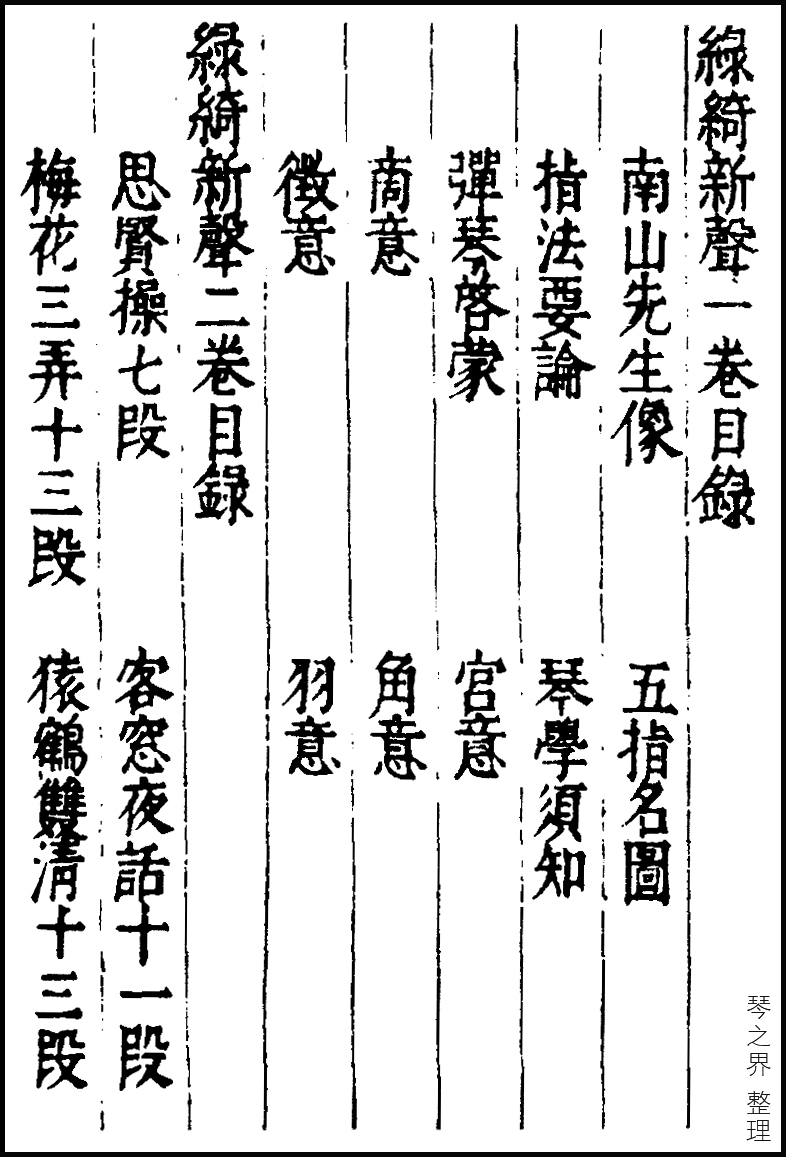 綠綺新聲一卷目錄
南山先生像 五指名圖
指法要論 琴學須知
彈琴啓蒙 宮意
商意 角意
徵意 羽意
綠綺新聲二卷目錄
思賢操七段 客窓夜話十一段
梅花三弄十三段 猿鶴雙清十三段
琴之界 整理